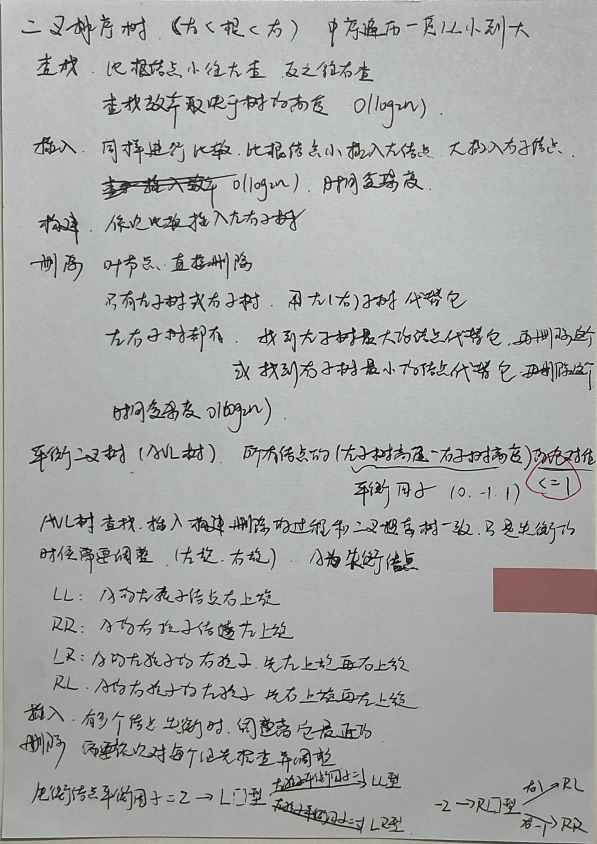 二叉排序树 (左<根<右) 中序遍历一定从小到大
查找. 比根结点小往左查 反之往右查
查找效率取决于树的高度 O(log2n).
插入. 同样进行比较. 比根结点小插入左结点. 大插入右子结点.
O(log2n). 时间复杂度.
构建. 依次比较插入左右子树
删除 叶节点. 直接删除
只有左子树或右子树. 用左(右)子树代替它
左右子树都有. 找到左子树最大的结点代替它. 再删除这个
或找到右子树最小的结点代替它. 再删除这个
时间复杂度 O(log2n).
平衡二叉树 (AVL树). 所有结点的(左子树高度-右子树高度)的绝对值
<=1
平衡因子 (0. -1. 1)
AVL树查找. 插入 构建 删除的过程和二叉排序树一致. 只是失衡的
时候需要调整 (左旋. 右旋) . A为失衡结点
LL: A的左孩子结点右上旋
RR: A的右孩子结点左上旋
LR: A的左孩子的右孩子. 先左上旋再右上旋
RL. A的右孩子的左孩子 先右上旋再左上旋
插入. 有多个结点失衡时. 调整离它最近的
删除 需要依次对每个祖先检查平调整
失衡结点平衡因子=2 → L口型 左孩子平衡因子=1 → LL型
左孩子平衡因子=-1 → LR型.
-2 → R口型 右1 → RL
右-1 → RR